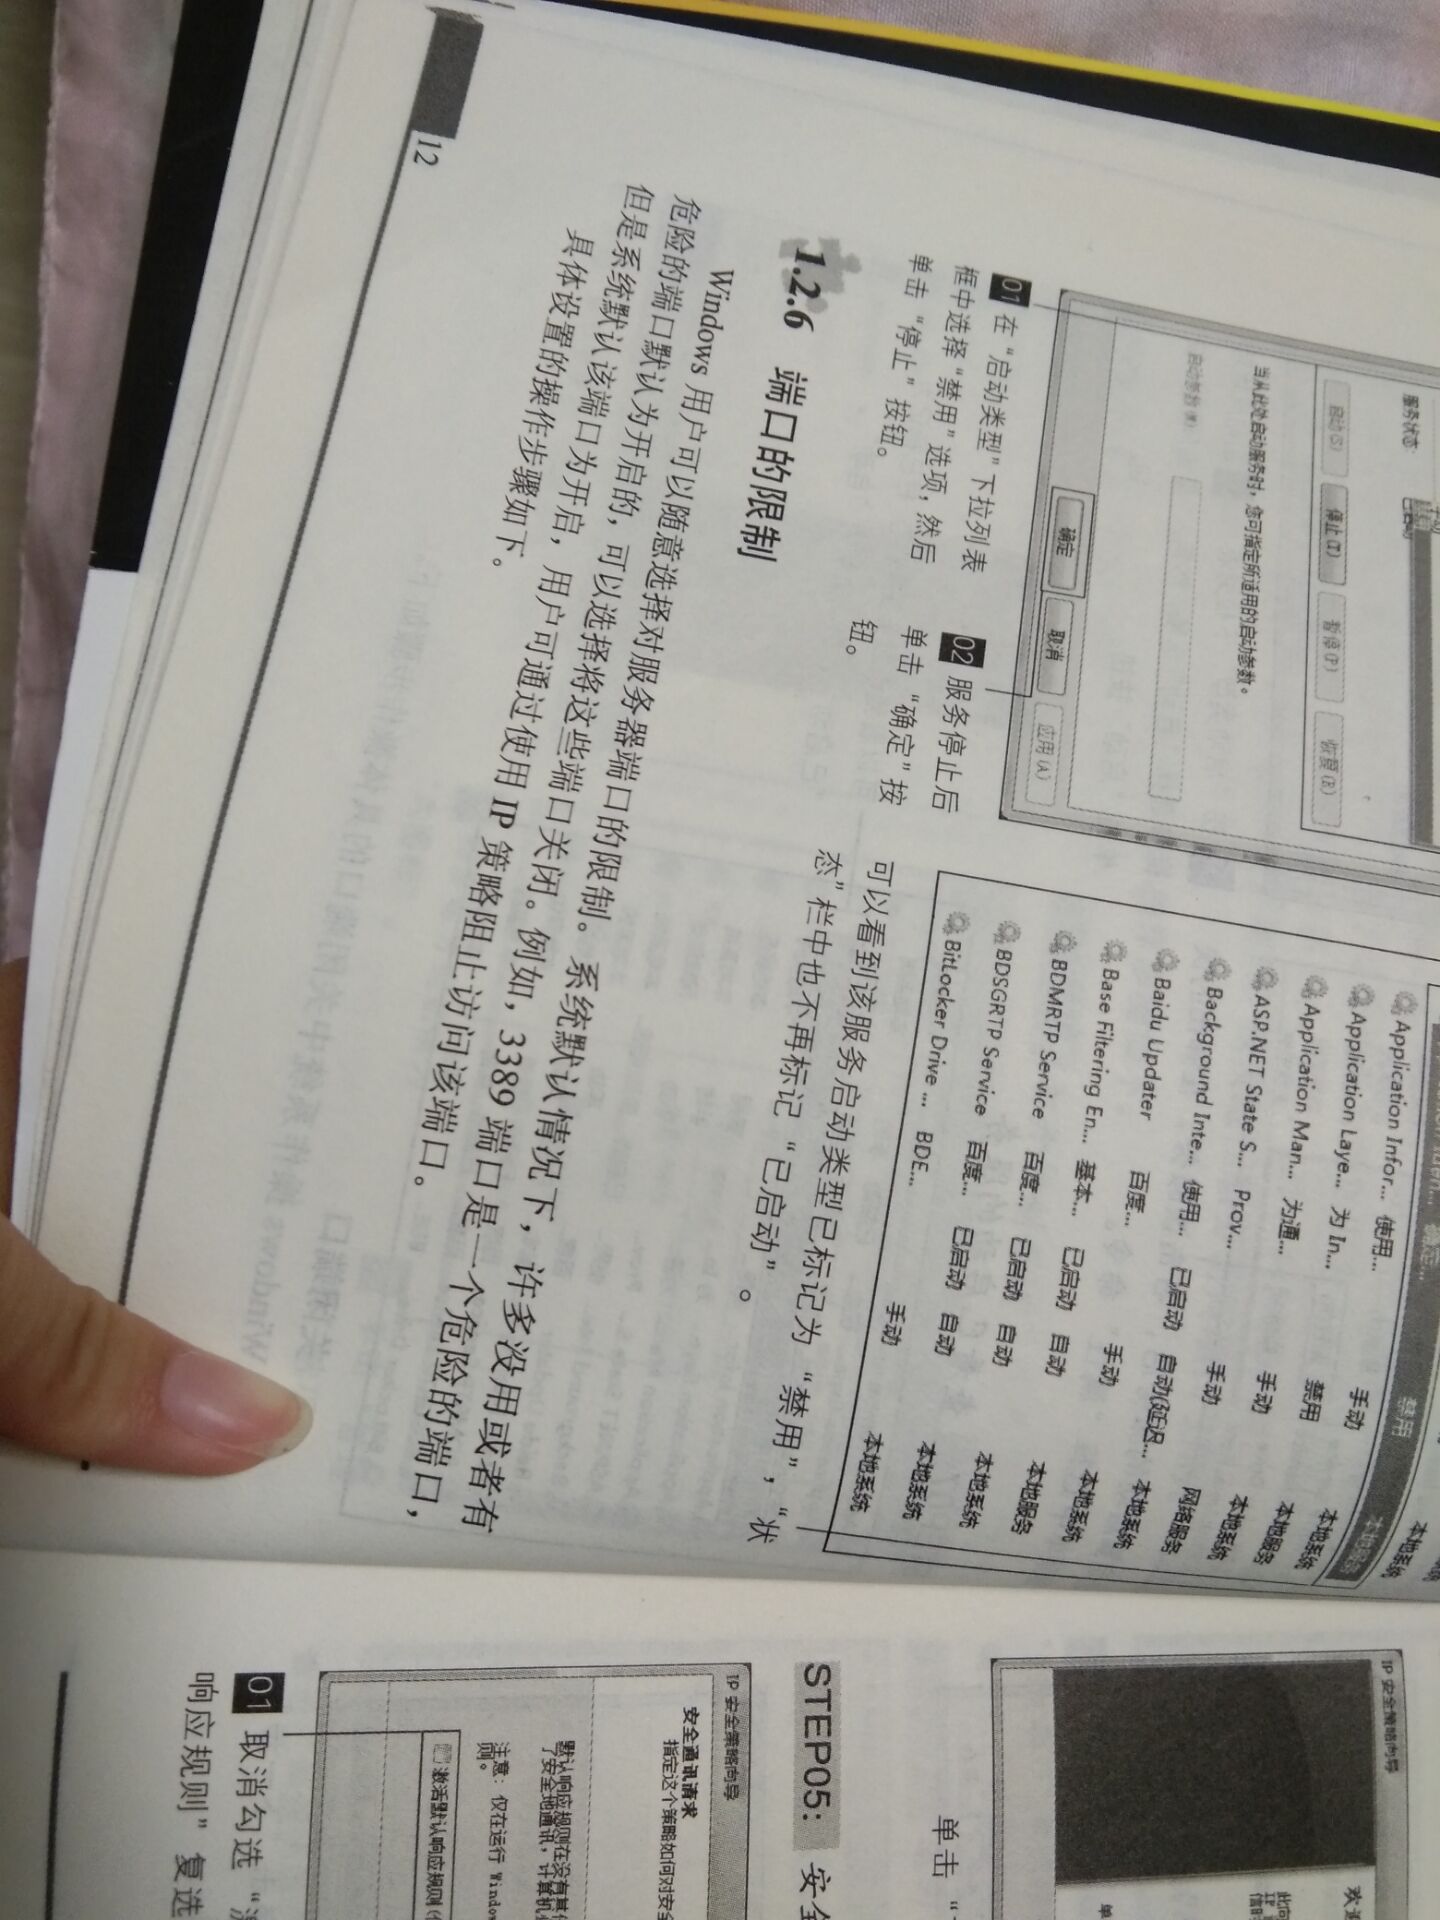 服务状态:
已启动
启动(S)
停止(T)
暂停(P)
恢复(R)
当从此处启动服务时，您可指定所适用的启动参数。
启动参数(M):
确定
取消
应用(A)
01 在“启动类型”下拉列表
框中选择“禁用”选项，然后
单击“停止”按钮。
02 服务停止后
单击“确定”按
钮。
禁用
Application Infor... 使用... 手动 本地系统
Application Laye... 为 In... 禁用 本地服务
Application Man... 为通... 手动 本地系统
ASP.NET State S... Prov... 手动 网络服务
Background Inte... 使用... 已启动 自动(延迟... 本地系统
Baidu Updater 百度... 手动 本地系统
Base Filtering En... 基本... 已启动 自动 本地服务
BDMRTP Service 百度... 已启动 自动 本地系统
BDSGRTP Service 百度... 已启动 自动 本地系统
BitLocker Drive ... BDE... 手动 本地系统
可以看到该服务启动类型已标记为“禁用”，“状
态”栏中也不再标记“已启动”。
1.2.6 端口的限制
Windows 用户可以随意选择对服务器端口的限制。系统默认情况下，许多没用或者有
危险的端口默认为开启的，可以选择将这些端口关闭。例如，3389 端口是一个危险的端口，
但是系统默认该端口为开启，用户可通过使用 IP 策略阻止访问该端口。
具体设置的操作步骤如下。
12
IP 安全策略向导
单击“
STEP05: 安全
IP 安全策略向导
安全通讯请求
指定这个策略如何对安全
注意: 仅在运行 Window
则。
激活默认响应规则
01 取消勾选“激
响应规则”复选